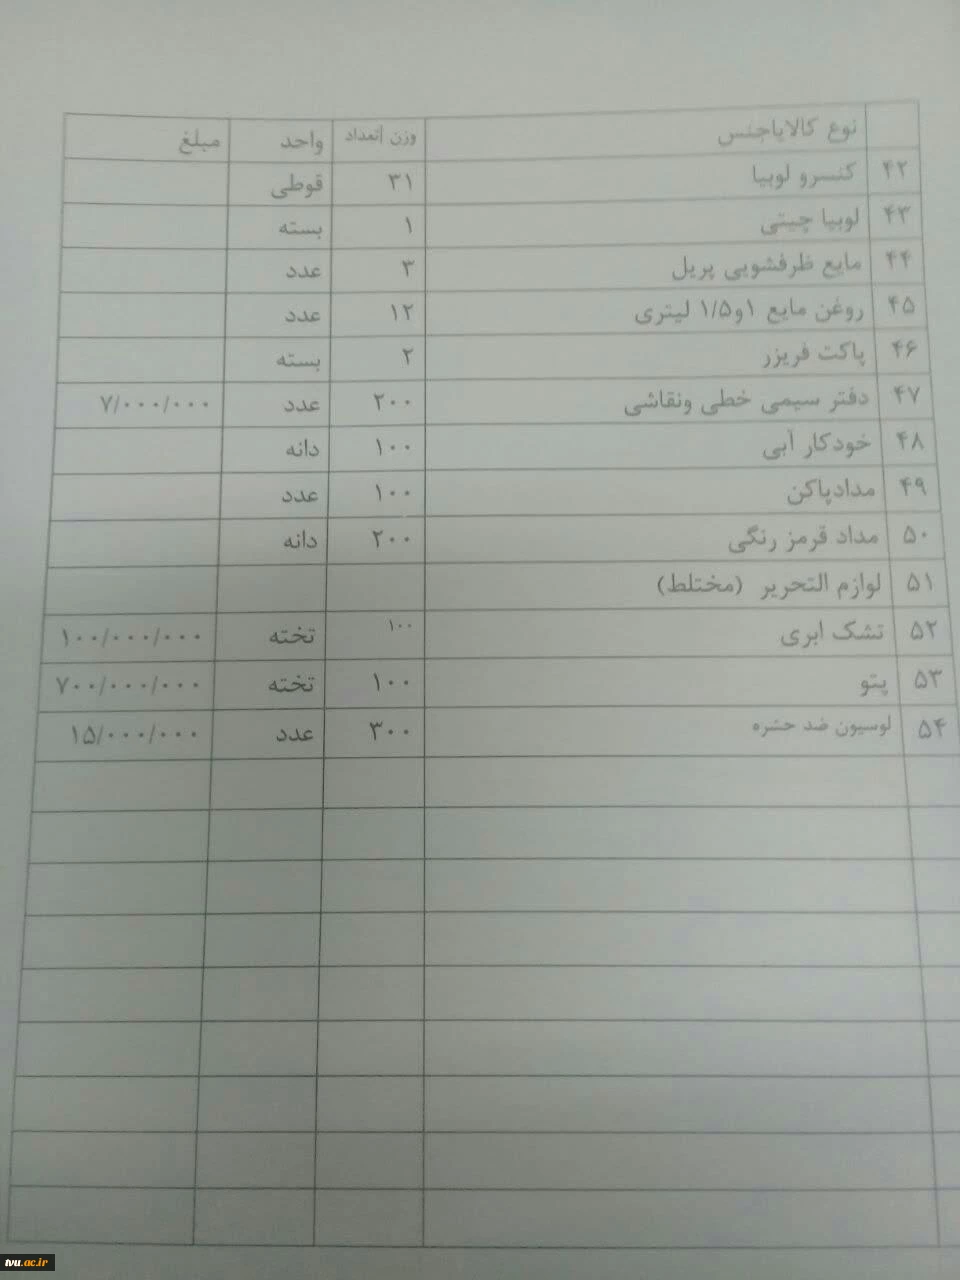 نوع کالایاجنس وزن |تعداد واحد مبلغ
۴۲ کنسرو لوبیا ۳۱ قوطی
۴۳ لوبیا چیتی ۱ بسته
۴۴ مایع ظرفشویی پریل ۳ عدد
۴۵ روغن مایع ۱و۱/۵ لیتری ۱۲ عدد
۴۶ پاکت فریزر ۲ بسته
۴۷ دفتر سیمی خطی ونقاشی ۲۰۰ عدد ۷/۰۰۰/۰۰۰
۴۸ خودکار آبی ۱۰۰ دانه
۴۹ مدادپاکن ۱۰۰ عدد
۵۰ مداد قرمز رنگی ۲۰۰ دانه
۵۱ لوازم التحریر (مختلط)
۵۲ تشک ابری ۱۰۰ تخته ۱۰۰/۰۰۰/۰۰۰
۵۳ پتو ۱۰۰ تخته ۷۰۰/۰۰۰/۰۰۰
۵۴ لوسیون ضد حشره ۳۰۰ عدد ۱۵/۰۰۰/۰۰۰
tvu.ac.ir